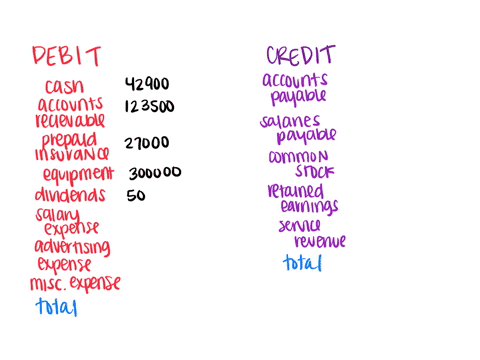 DEBIT
cash 42900
accounts 123500
recievable
prepaid 27000
insurance
equipment 300000
dividends 50
salary
expense
advertising
expense
misc. expense
total
CREDIT
accounts
payable
salaries
payable
common
stock
retained
earnings
service
revenue
total